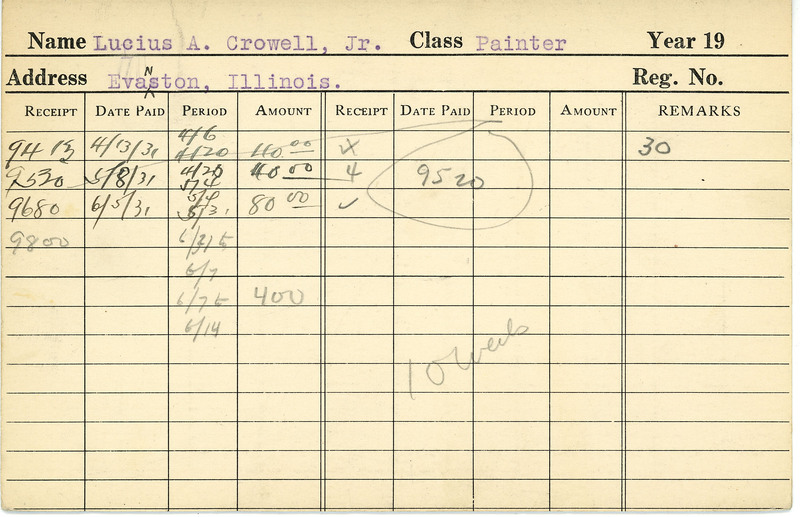 Name Lucius A. Crowell, Jr. Class Painter Year 19
Address Evanston, Illinois. Reg. No.
RECEIPT DATE PAID PERIOD AMOUNT RECEIPT DATE PAID PERIOD AMOUNT REMARKS
4/6
9413 4/13/31 4/20 40 00 30
9520 5/8/31 4/20 40 00 4 9520
5/4
9680 6/5/31 5/4 80 00 ✓
5/31
9800
6/7
400
6/14
10 weeks